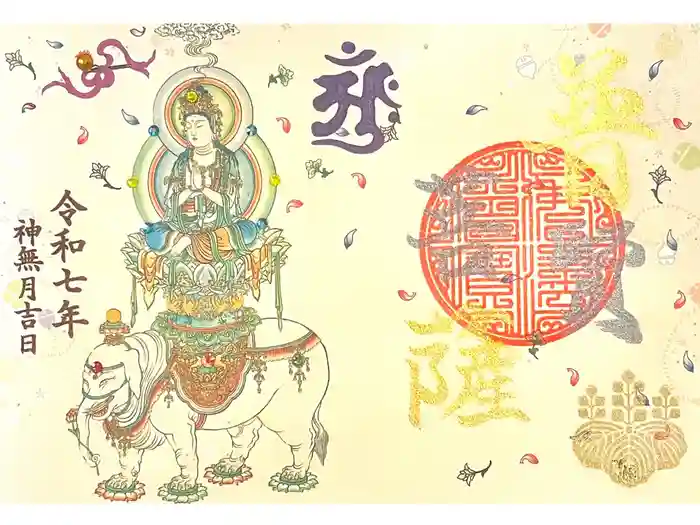 普賢菩薩
令和七年
神無月吉日